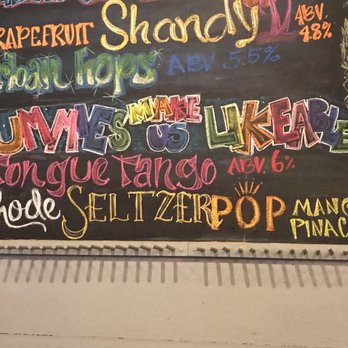 GRAPEFRUIT Shandy ABV. 4.8%
Urban hops ABV 5.5%
UMMIES MAKE US LIKEABLE
Tongue Tango ABV. 6%
hode SELTZER POP MANG
PINAC